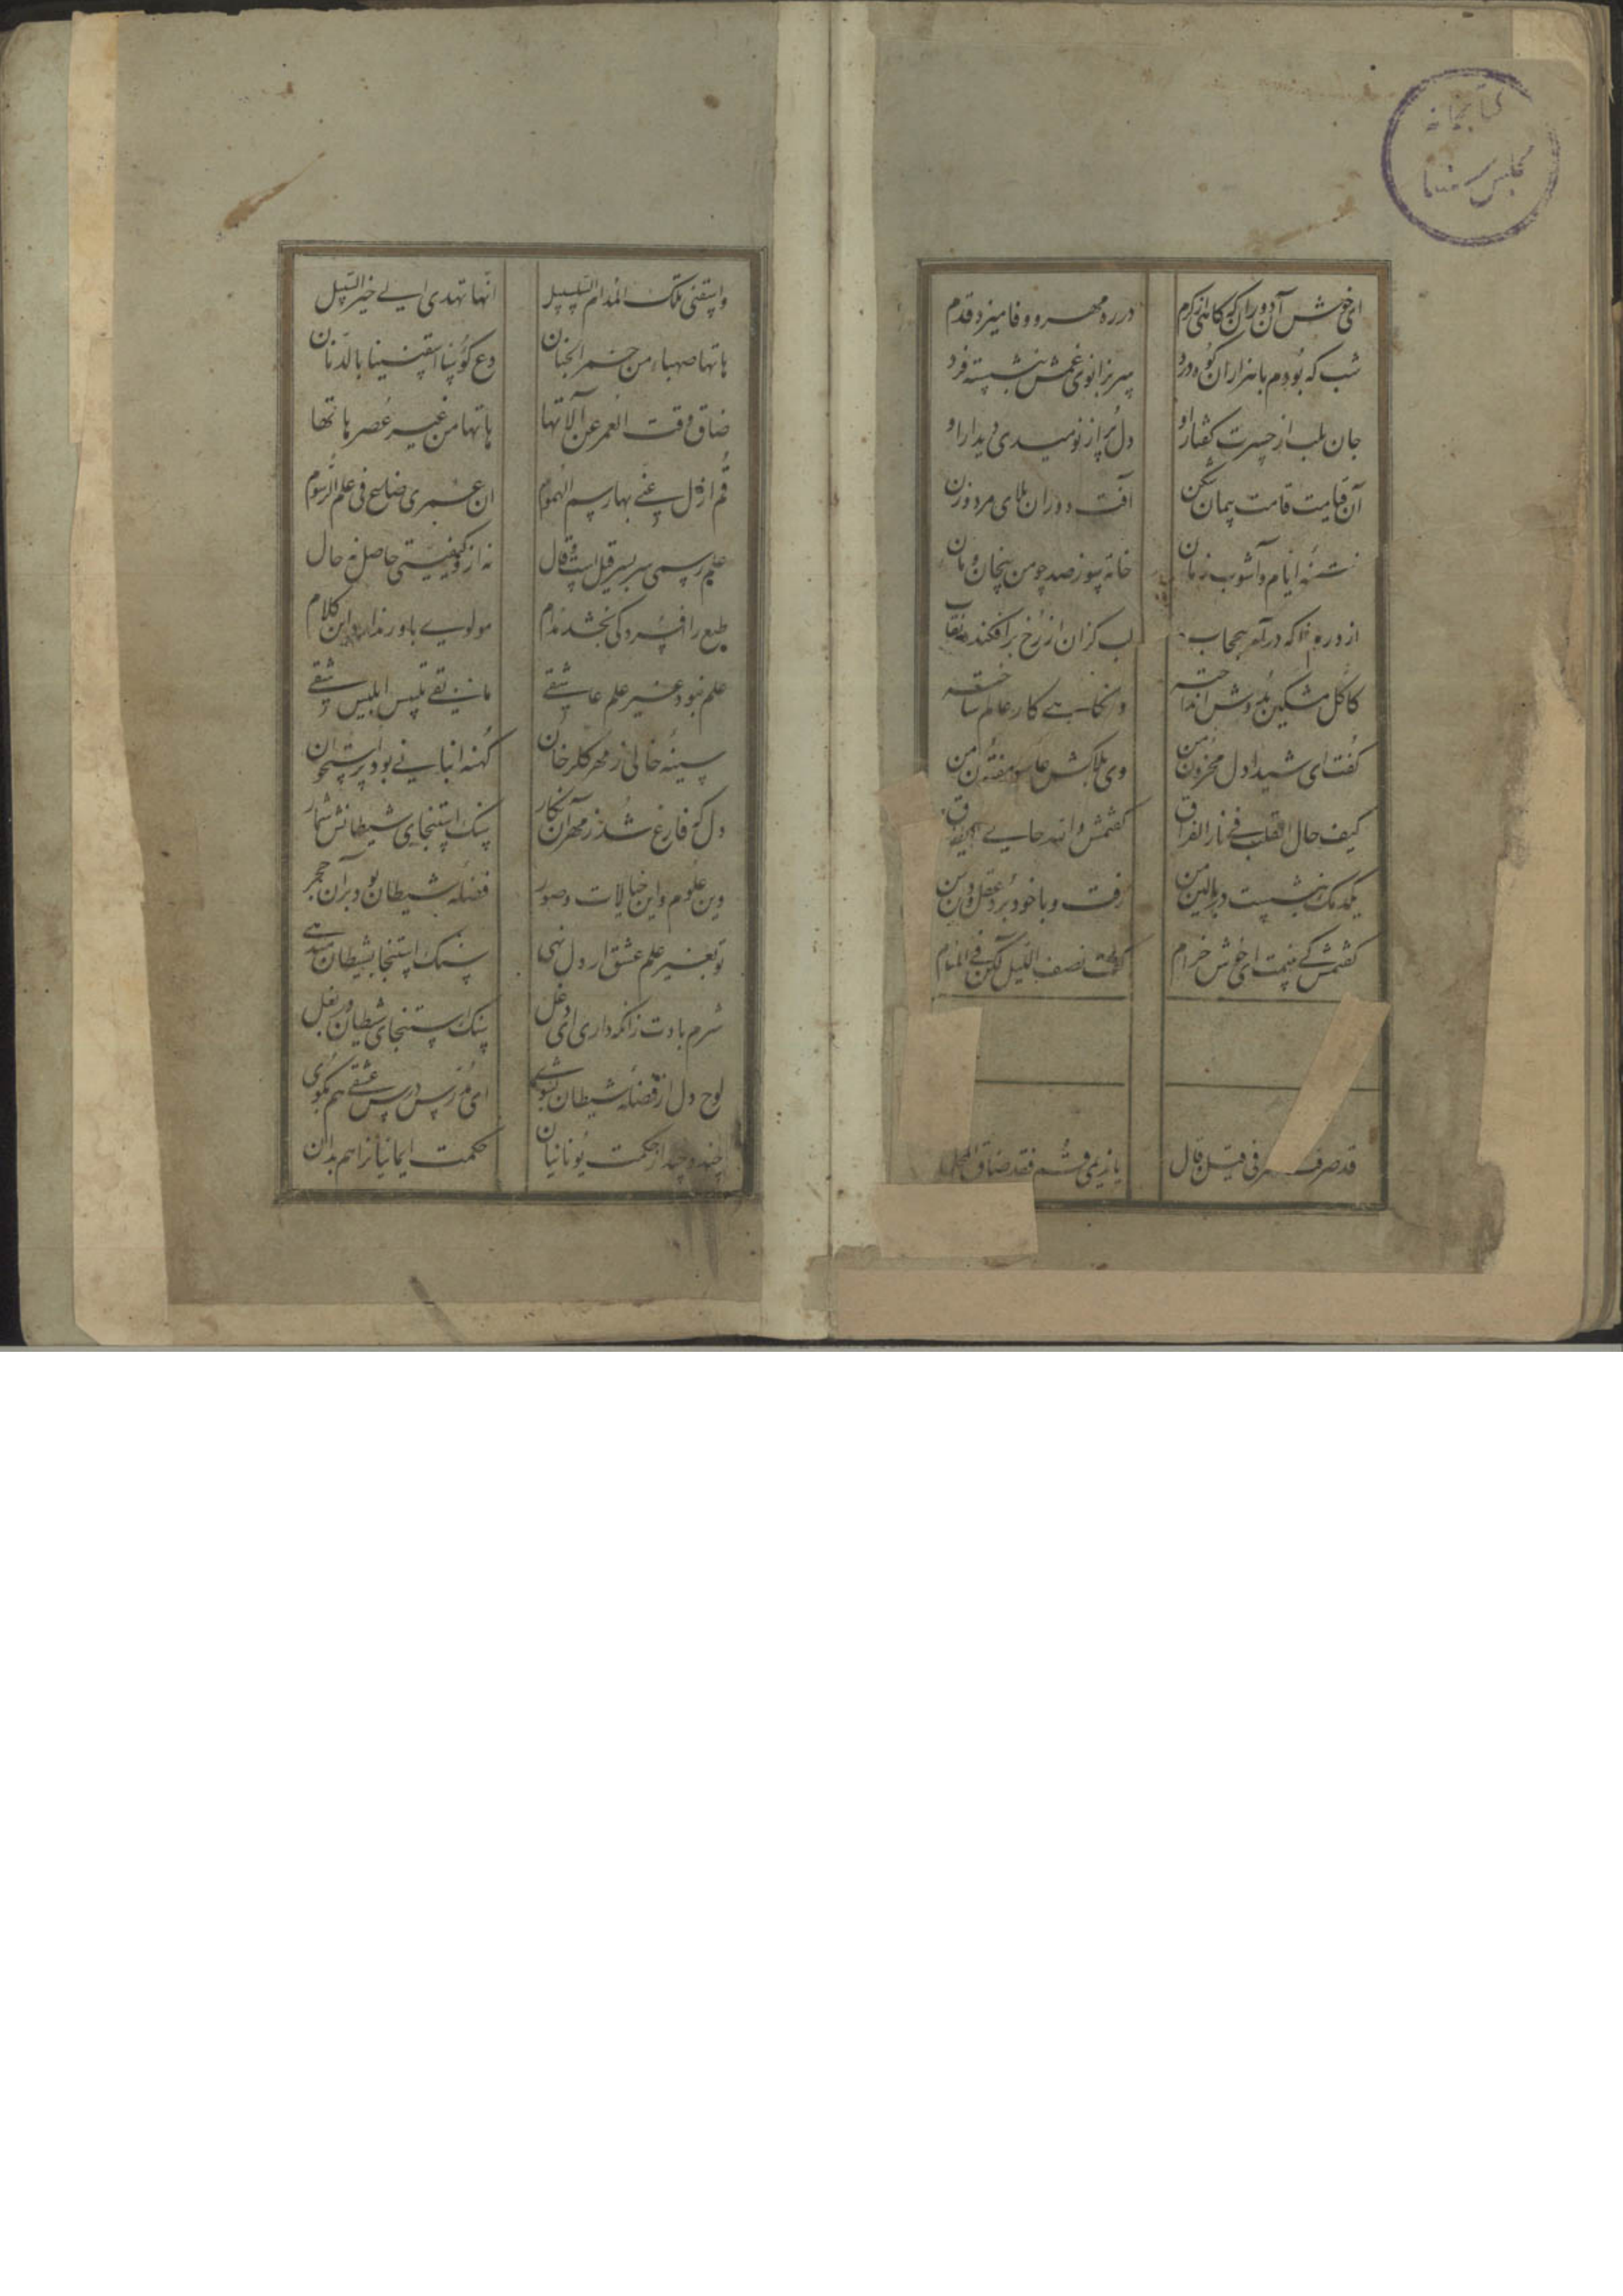 کتابخانه
مجلس سنا
ای خوش آن دوران که گاهی از کرم در ره مهر و وفا میزد قدم
شب که بودم با هزاران کوه درد سر بزانوی غمش بنشسته فرد
جان بلب از حسرت گفتار او دل پر از نومیدی دیدار او
آن قیامت قامت پیمان شکن آفت دوران بلای مرد و زن
فتنه ایام و آشوب زمان خانه سوز صد چو من بیخان و مان
از درم ناگه درآمد بیحجاب لب گزان از رخ برافکنده نقاب
کاکل مشکین بدوش انداخته وز نگاهی کار عالم ساخته
گفت ای شیدا دل محزون من وی بلاکش عاشق مفتون من
کیف حال القلب فی نار الفراق گفتمش والله حالی لا یطاق
یکدمک بنشست بر بالین من رفت و با خود برد عقل و دین من
گفتمش کی بینمت ای خوش خرام گفت نصف اللیل لکن فی المنام
قد صرفت العمر فی قیل و قال یا ندیمی قم فقد ضاق المجال
واسقنی تلک المدام السلسبیل انها تهدی الی خیر السبیل
هاتها صهباء من خمر الجنان دع کؤسا و اسقنیها بالدنان
ضاق وقت العمر عن آلاتها هاتها من غیر عصر هاتها
قم ازل عنی بها رسم الهموم ان عمری ضاع فی علم الرسوم
علم رسمی سر بسر قیل است و قال نه ازو کیفیتی حاصل نه حال
طبع را افسردگی بخشد مدام مولوی باور ندارد این کلام
علم نبود غیر علم عاشقی مابقی تلبیس ابلیس شقی
سینه خالی ز مهر گلرخان کهنه انبانی بود پر استخوان
دل که فارغ شد ز مهر آن نگار سنگ استنجای شیطانش شمار
وین علوم و این خیالات و صور فضله شیطان بود بر آن حجر
تو بغیر علم عشق ار دل نهی سنگ استنجا بشیطان میدهی
شرم بادت زانکه داری ای دغل سنگ استنجای شیطان در بغل
لوح دل از فضله شیطان بشوی ای مدرس درس عشقی هم بگوی
چند و چند از حکمت یونانیان حکمت ایمانیانرا هم بدان